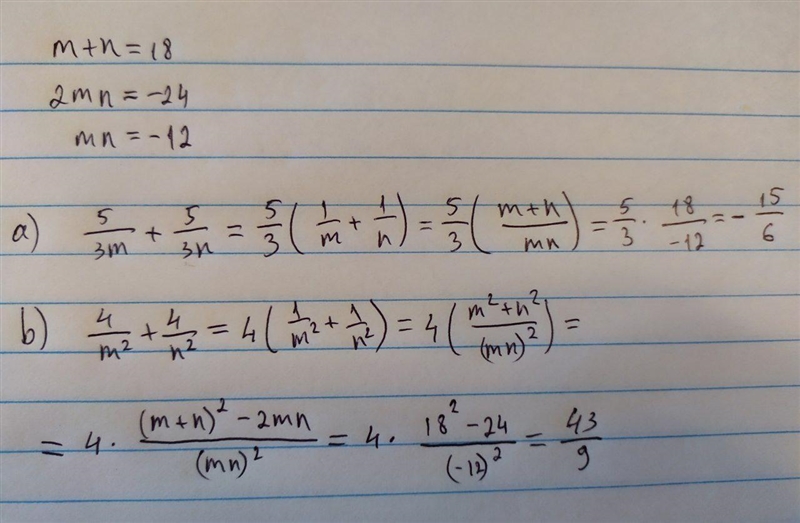 m+n=18
2mn=-24
mn=-12
a) 5/3m + 5/3n = 5/3 (1/m + 1/n) = 5/3 (m+n/mn) = 5/3 · 18/-12 = - 15/6
b) 4/m² + 4/n² = 4 (1/m² + 1/n²) = 4 (m²+n²/(mn)²) =
= 4 · (m+n)² - 2mn/(mn)² = 4 · 18² - 24/(-12)² = 43/9